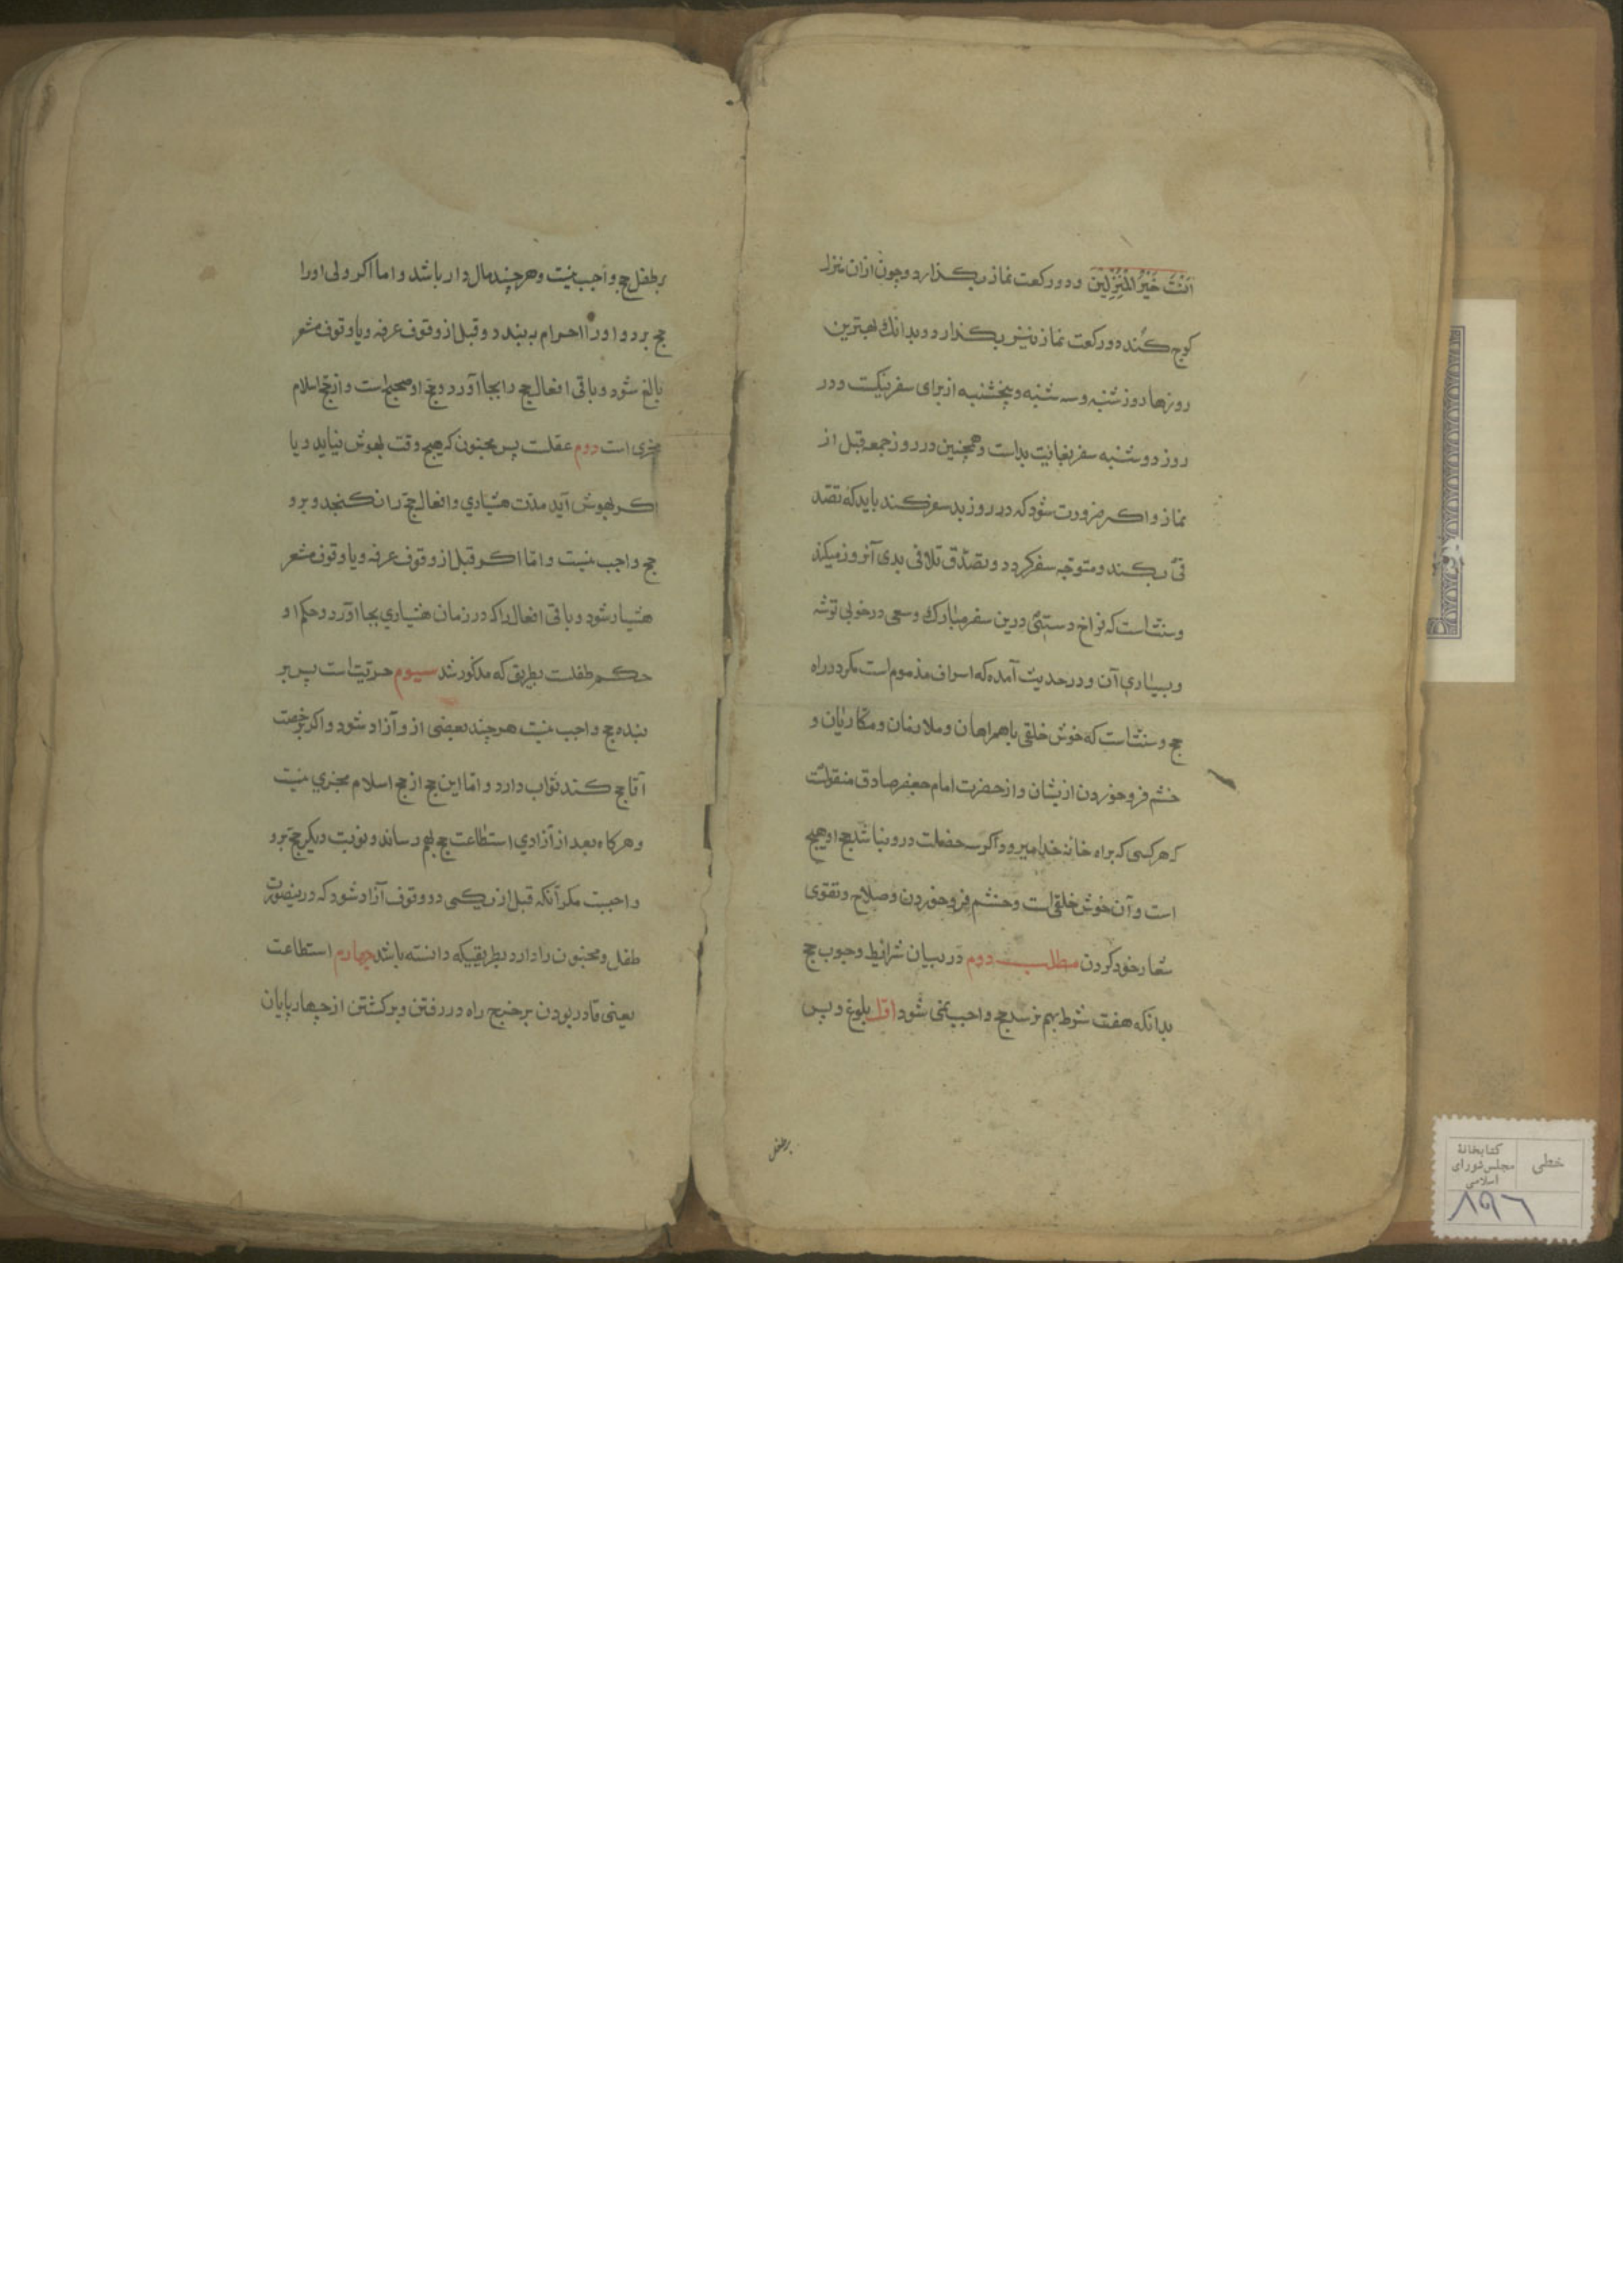 اَنْتَ خَيْرُ الْمُنْزِلِينَ و دو ركعت نماز بكذارد و چون ازان منزل
كوچ كند دو ركعت نماز نيز بكذارد و بدانك بهترين
روزها روز شنبه و سه شنبه و پنجشنبه از براى سفر نيكست و در
روز دوشنبه سفر بغايت بد است و همچنين در روز جمعه قبل از
نماز و اكر ضرورت شود كه در روز بد سفر كند بايد كه تصد
قى بكند و متوجه سفر كردد و تصدّق تلافى بدى آنروز ميكند
و سنّت است كه فراخ دستى درين سفر مبارك و سعى در خوبى توشه
و بسيارى آن و در حديث آمده كه اسراف مذموم است مكر در راه
حج و سنّت است كه خوش خلقى با همراهان و ملازمان و مكاريان و
خشم فرو خوردن ازيشان و از حضرت امام جعفر صادق منقولست
كه هر كسى كه براه خانه خدا ميرود اكر سه خصلت درو نباشد حج او هيچ
است و آن خوش خلقى است و خشم فرو خوردن و صلاح و تقوى
شعار خود كردن مطلب دوم در بيان شرايط وجوب حج
بدانكه هفت شرط بهم نرسد حج واجب نمى شود اوّل بلوغ و پس
بر طفل
بر طفل حج واجب نيست و هر چند مال دار باشد و اما اكر ولى او را
حج برد و او را احرام به بندد و قبل از وقوف عرفه و يا وقوف مشعر
بالغ شود و باقى افعال حج را بجا آورد و حج او صحيح است و از حج اسلام
مجزى است دوم عقلست پس مجنون كه هيچ وقت بهوش نيايد و يا
اكر بهوش آيد مدّت هشيارى و افعال حج را نكنجد و برو
حج واجب نيست و امّا اكر قبل از وقوف عرفه و يا وقوف مشعر
هشيار شود و باقى افعال را كه در زمان هشيارى بجا آورد و حكم او
حكم طفلست بطريق كه مذكور شد سيوم حريّت است پس بر
بنده حج واجب نيست هر چند بعضى ازو آزاد شود و اكر برخصت
آقا حج كند ثواب دارد و امّا اين حج از حج اسلام مجزى نيست
و هر كاه بعد از آزادى استطاعت حج بهم رساند و نوبت ديكر حج برو
واجبست مكر آنكه قبل از يكى دو وقوف آزاد شود كه درينصورت
طفل و مجنون را دارد بطريقيكه دانسته باشد چهارم استطاعت
يعنى قادر بودن بر خرج راه در رفتن و بركشتن از چهار پايان
خطى
كتابخانهٔ
مجلس شوراى
اسلامى